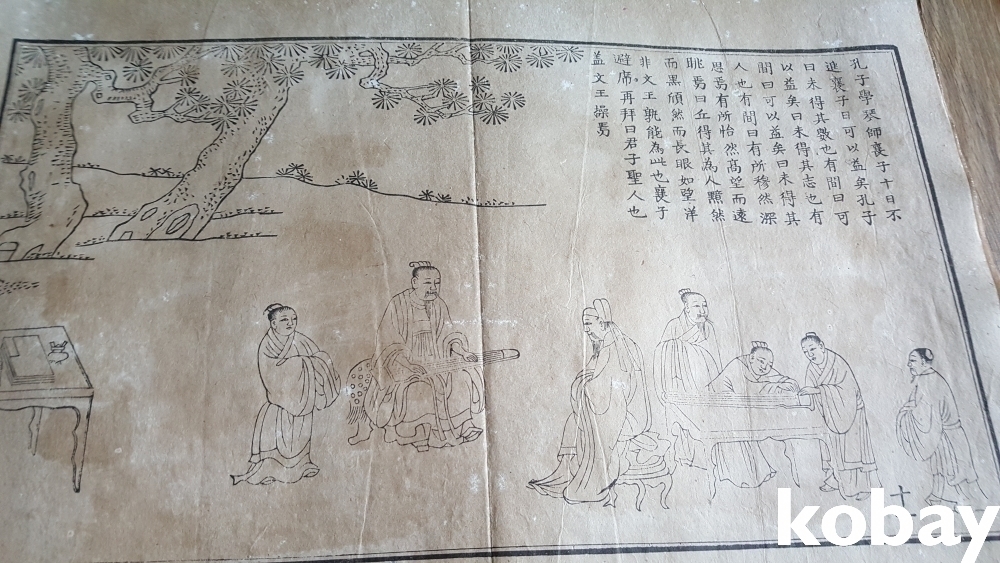 孔子學琴師襄子十日不
進襄子曰可以益矣孔子
曰未得其數也有間曰可
以益矣曰未得其志也有
間曰可以益矣曰未得其
人也有間曰有所穆然深
思焉有所怡然髙望而遠
眺焉曰丘得其為人黯然
而黒頎然而長眼如望洋
非文王孰能為此也襄子
避席再拜曰君子聖人也
葢文王操焉
十
kobay